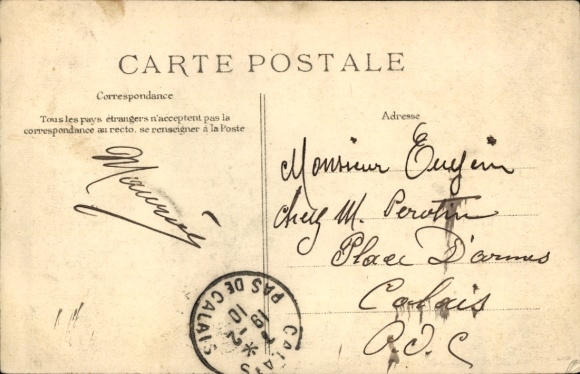 CARTE POSTALE
Correspondance
Tous les pays étrangers n'acceptent pas la
correspondance au recto. se renseigner à la Poste
Adresse
Maurice
Monsieur Eugène
chez M. Perotin
Place D'armes
Calais
P. D. C
CALAIS
PAS DE CALAIS
* 2
10
19